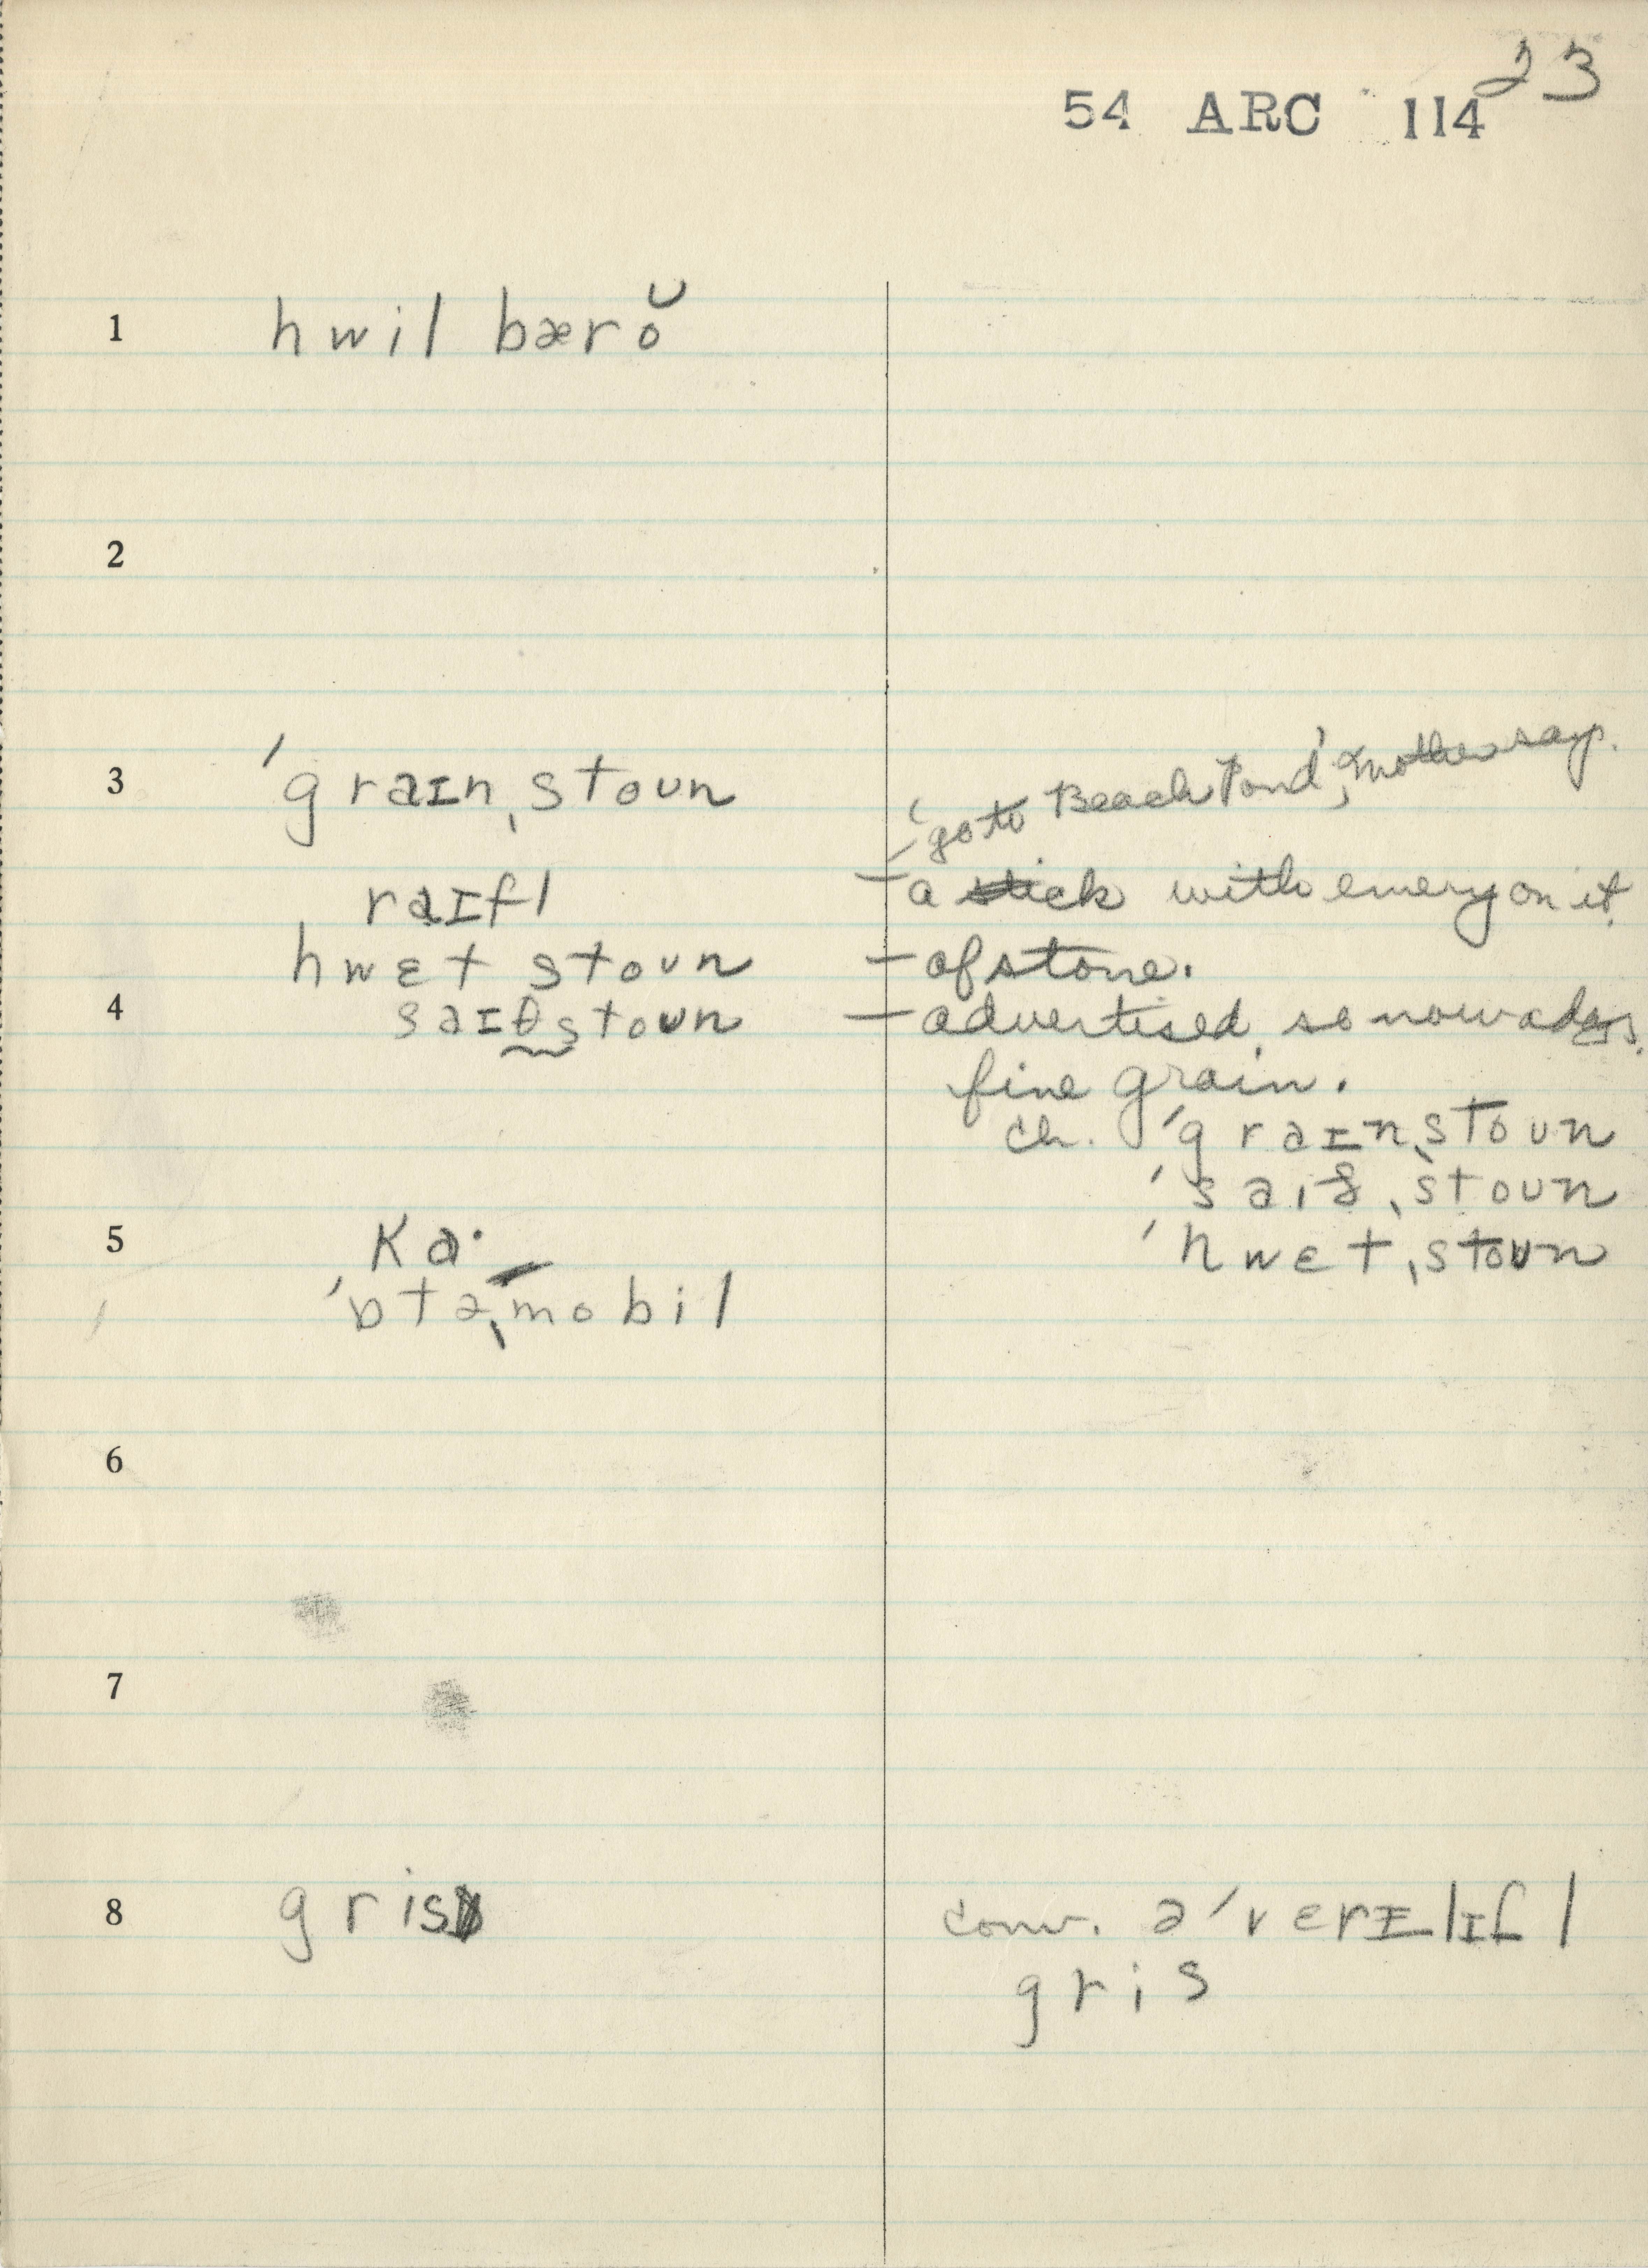 23
54 ARC 114
1 hwil bærŏ
2
3 ˈgraɪnˌstoun
'go to Beach Pond', mother says.
raɪfl – a stick with emery on it.
hwɛt stoun – of stone.
4 saɪθstoun – advertised so nowadays.
fine grain.
ch. ˈgraɪnˌstoun
ˈsaiθˌstoun
5 ka·
ˈhwɛtˌstoun
ˈɒtəˌmobil
6
7
8 gris
conv. əˈvɛrɪlɪfl
gris